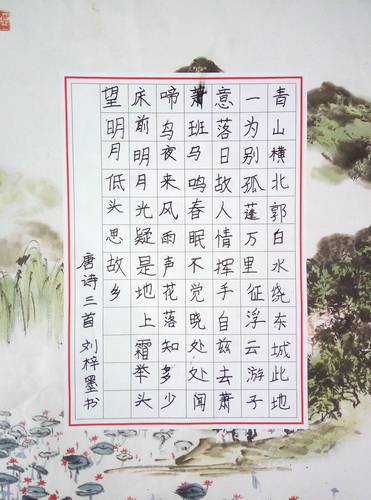 青山横北郭白水绕东城此地
一为别孤蓬万里征浮云游子
意落日故人情挥手自兹去萧
萧班马鸣春眠不觉晓处处闻
啼鸟夜来风雨声花落知多少
床前明月光疑是地上霜举头
望明月低头思故乡
唐诗三首 刘梓墨书